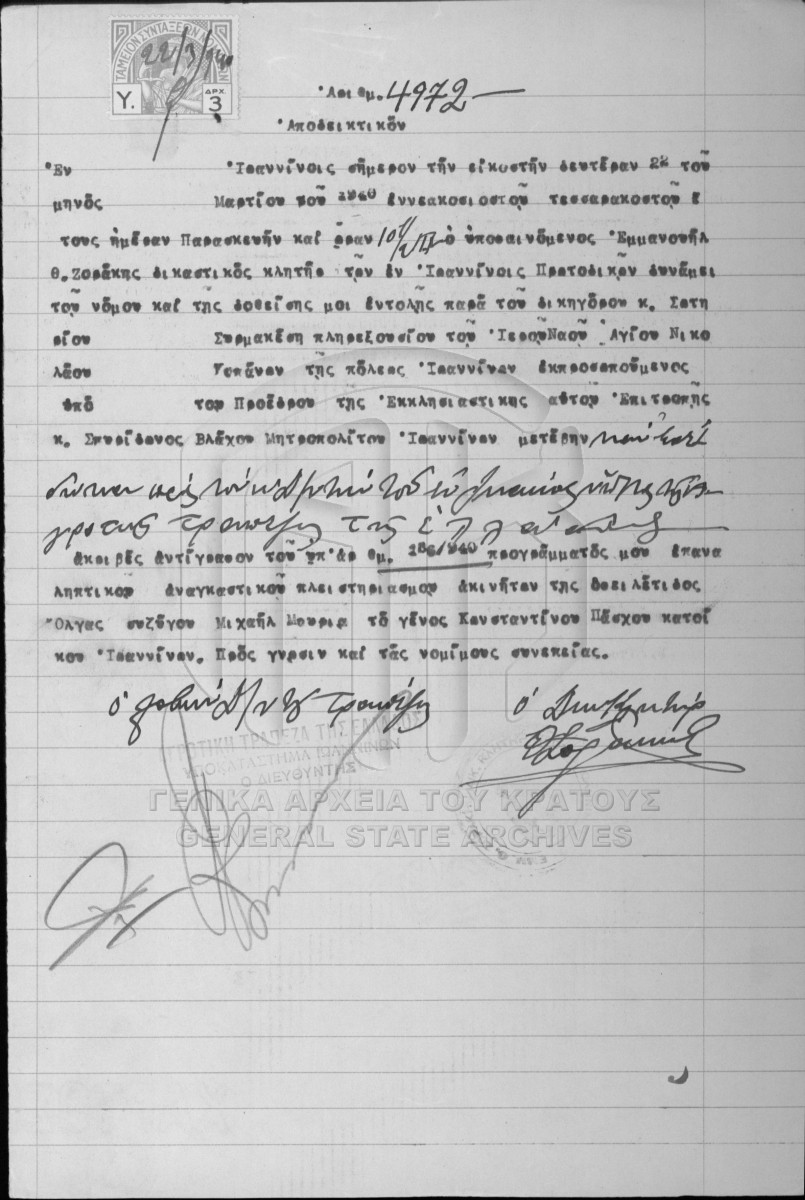 ΤΑΜΕΙΟΝ ΣΥΝΤΑΞΕΩΝ
22/3/940
Υ. ΔΡΧ. 3
Ἀριθμ. 4972
Ἀποδεικτικόν
Ἐν Ἰωαννίνοις σήμερον τήν εἰκοστήν δευτέραν 22 τοῦ
μηνός Μαρτίου τοῦ 1940 ἐννεακοσιοστοῦ τεσσαρακοστοῦ ἔ
τους ἡμέραν Παρασκευήν καί ὥραν 10 1/2 ὁ ὑποφαινόμενος Ἐμμανουήλ
Θ. Ζοράκης δικαστικός κλητήρ τῶν ἐν Ἰωαννίνοις Πρωτοδικῶν δυνάμει
τοῦ νόμου καί τῆς δοθείσης μοι ἐντολῆς παρά τοῦ δικηγόρου κ. Σωτη
ρίου Συρμακέση πληρεξουσίου τοῦ Ἱεροῦ Ναοῦ Ἁγίου Νικο
λάου Κοπάνων τῆς πόλεως Ἰωαννίνων ἐκπροσωπούμενος
ὑπό τοῦ Προέδρου τῆς Ἐκκλησιαστικῆς αὐτοῦ Ἐπιτροπῆς
κ. Σπυρίδωνος Βλάχου Μητροπολίτου Ἰωαννίνων μετέβην
πρός τόν τοῦ
Τραπέζης τῆς Ἑλλάδος
ἀκριβές ἀντίγραφον τοῦ ὑπ' ἀρ θμ. 186/940 προγράμματός μου ἐπανα
ληπτικοῦ ἀναγκαστικοῦ πλειστηριασμοῦ ἀκινήτων τῆς ὀφειλέτιδος
Ὄλγας συζύγου Μιχαήλ Μουρίμ τό γένος Κωνσταντίνου Πάσχου κατοί
κου Ἰωαννίνων. Πρός γνῶσιν καί τάς νομίμους συνεπείας.
ὁ Τραπέζης ὁ Δικ. Κλητήρ
ΑΓΡΟΤΙΚΗ ΤΡΑΠΕΖΑ ΤΗΣ ΕΛΛΑΔΟΣ
ΥΠΟΚΑΤΑΣΤΗΜΑ ΙΩΑΝΝΙΝΩΝ
Ο ΔΙΕΥΘΥΝΤΗΣ
ΓΕΝΙΚΑ ΑΡΧΕΙΑ ΤΟΥ ΚΡΑΤΟΥΣ
GENERAL STATE ARCHIVES